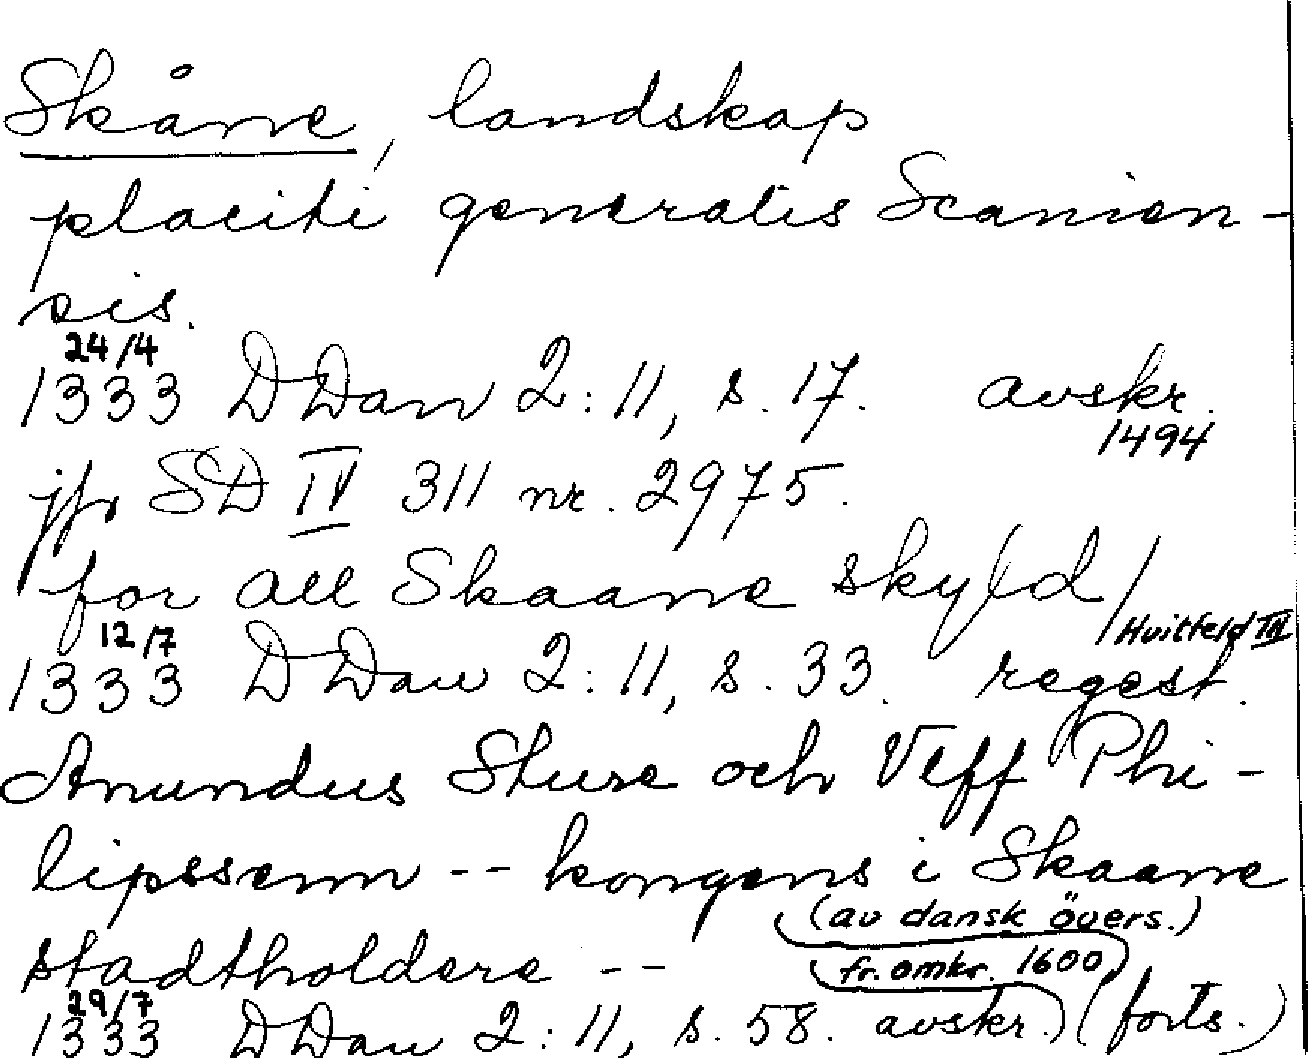 Skåne, landskap
placiti generalis Scanien-
sis.
24/4
1333 DDan 2:11, s. 17. avskr.
1494
jfr SD IV 311 nr. 2975.
for all Skaane skyld/
12/7 Huitfeld III
1333 DDan 2:11, s. 33. regest.
Anundus Sture och Vlff Phi-
lipssenn -- kongens i Skaane
(av dansk övers.)
stadtholdere --
fr. omkr. 1600
29/7
1333 DDan 2:11, s. 58. avskr.) (forts.)